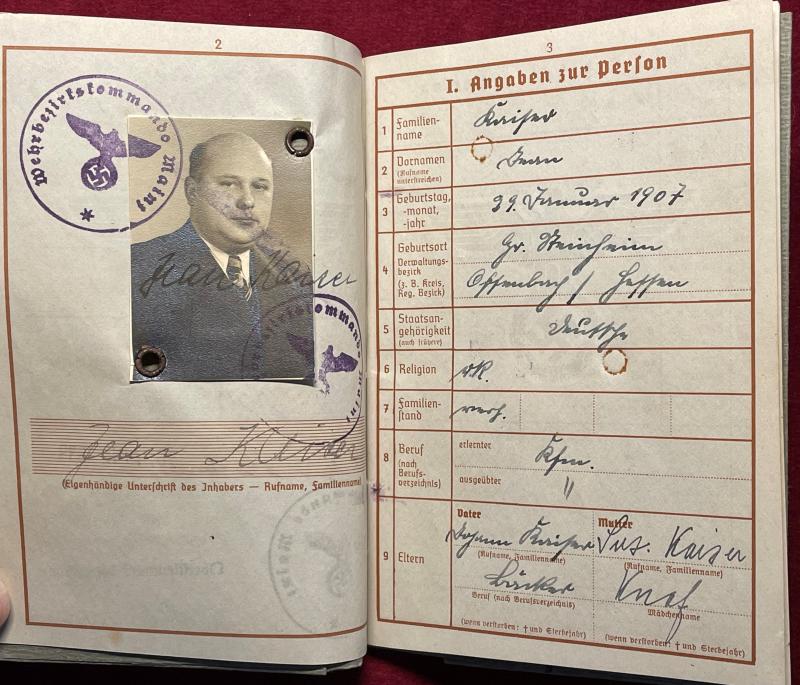 2
Wehrbezirkskommando Mainz
Jean Kaiser
Wehrbezirkskommando Mainz
Jean Kaiser
(Eigenhändige Unterschrift des Inhabers — Rufname, Familienname)
3
I. Angaben zur Person
1 Familien-
name
Kaiser
2 Vornamen
(Rufname
unterstreichen)
Jean
3 Geburtstag,
-monat,
-jahr
Januar 1907
4 Geburtsort
Verwaltungs-
bezirk
(z. B. Kreis,
Reg. Bezirk)
Gr. Steinheim
Offenbach / Hessen
5 Staatsan-
gehörigkeit
(auch frühere)
Deutsche
6 Religion
rk.
7 Familien-
stand
verh.
8 Beruf
(nach
Berufs-
verzeichnis)
erlernter
Kfm.
ausgeübter
"
9 Eltern
Vater
Johann Kaiser
(Rufname, Familienname)
Bäcker
Beruf (nach Berufsverzeichnis)
(wenn verstorben: † und Sterbejahr)
Mutter
Sus. Kaiser
(Rufname, Familienname)
Knaf
Mädchenname
(wenn verstorben: † und Sterbejahr)